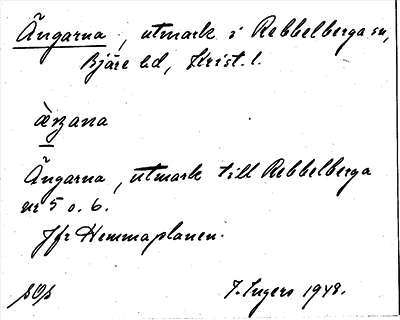 Ängarna, utmark i Rebbelberga sn,
Bjäre hd, Krist. l.
ängana
Ängarna, utmark till Rebbelberga
nr 5 o. 6.
Jfr Hemmaplanen.
I. Ingers 1948.